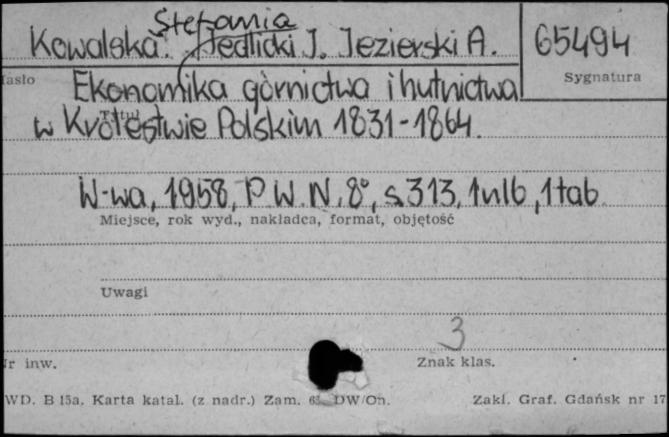 Stefania
Kowalska. Jedlicki J. Jezierski A. 65494
Hasło Sygnatura
Ekonomika górnictwa i hutnictwa
w Królestwie Polskim 1831-1864.
Tytuł
W-wa, 1958, P.W.N., 8°, s. 313, 1 nlb, 1 tab.
Miejsce, rok wyd., nakładca, format, objętość
Uwagi
3
Nr inw. Znak klas.
WD. B 15a. Karta katal. (z nadr.) Zam. DW/On. Zakł. Graf. Gdańsk nr 17